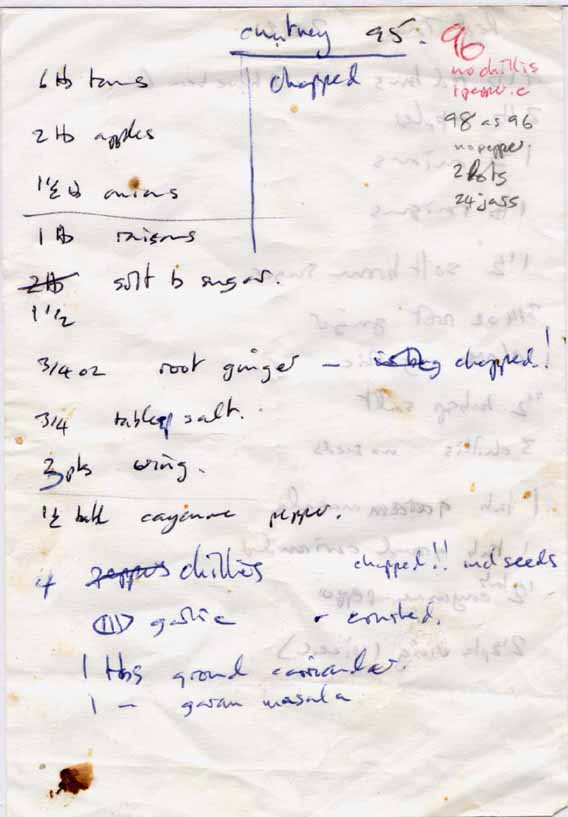 chutney 95. 96
no chillis
1 pepper
98 as 96
no pepper
2 lots
24 jars
6 lb toms chopped
2 lb apples
1½ lb onions
1 lb raisons
2lb soft b sugar.
1 1/2
3/4 oz root ginger - chopped!
3/4 tablesp salt.
3 pts ving.
1½ tabl cayenne pepper.
4 peppers chillies chopped!! incl seeds
(III) garlic - crushed.
1 tbs ground coriander.
1 - garam masala